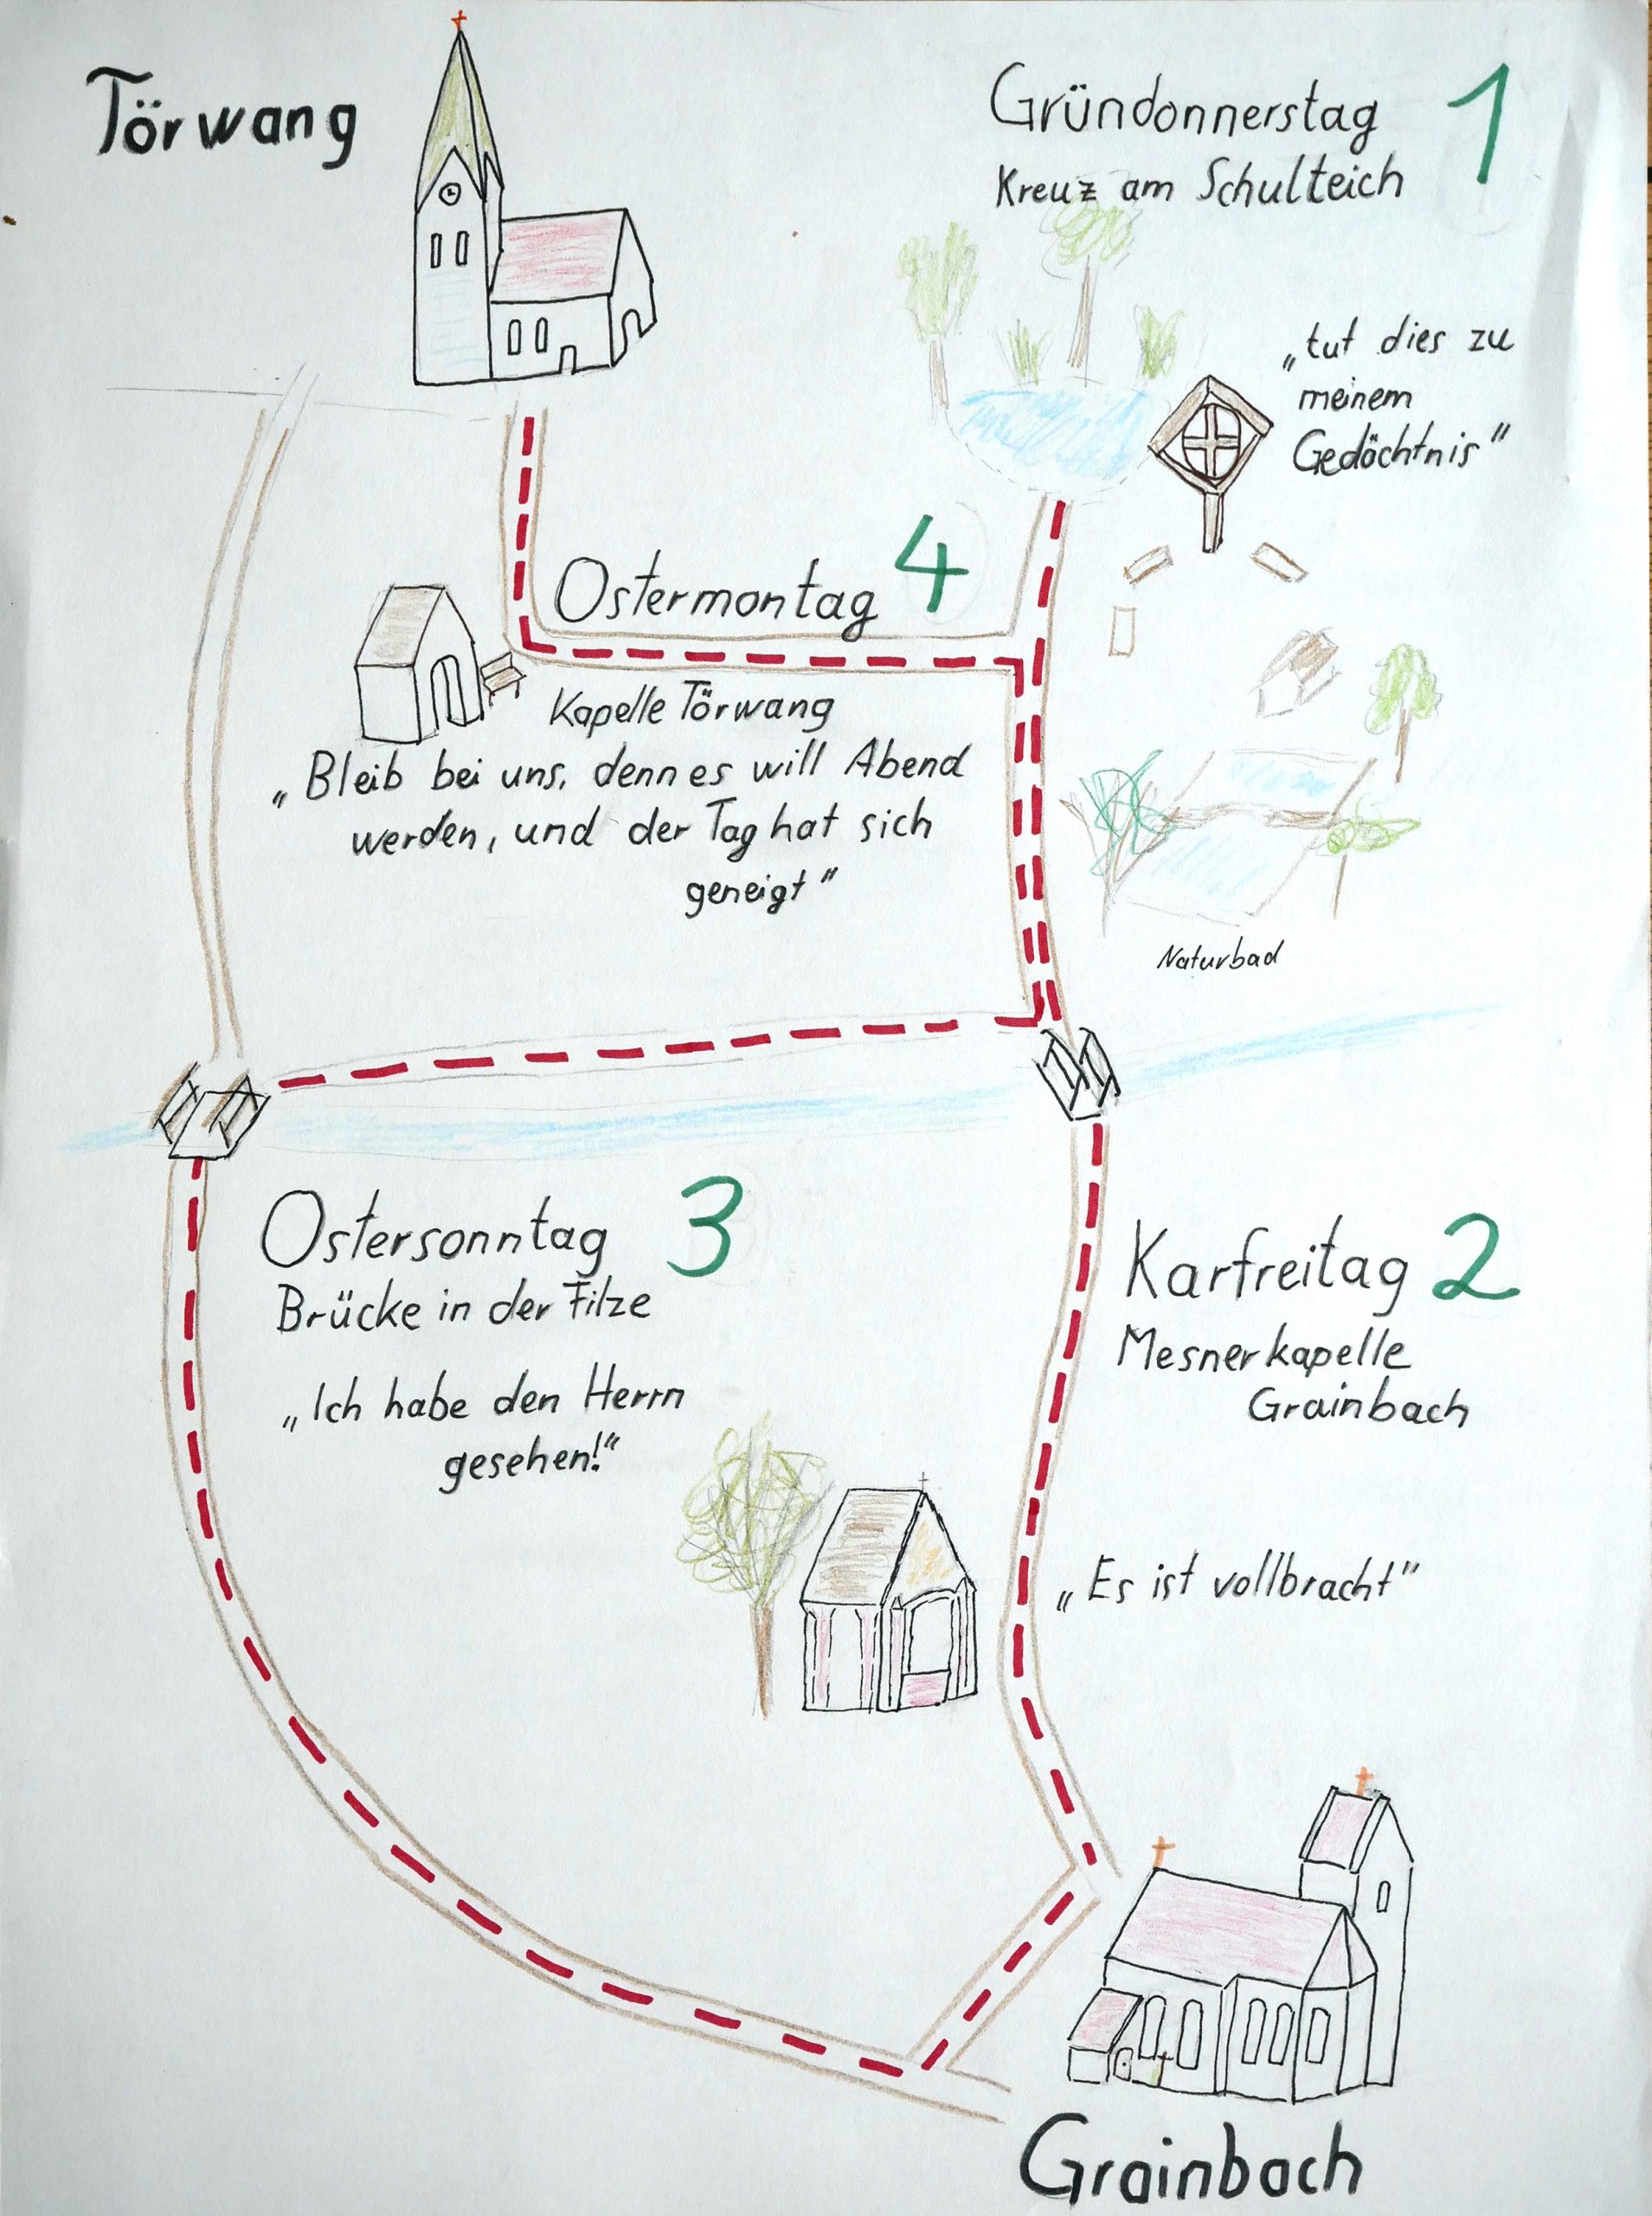 Törwang
Gründonnerstag 1
Kreuz am Schulteich
„tut dies zu
meinem
Gedächtnis"
Ostermontag 4
Kapelle Törwang
„Bleib bei uns, denn es will Abend
werden, und der Tag hat sich
geneigt"
Naturbad
Ostersonntag 3
Brücke in der Filze
„Ich habe den Herrn
gesehen!"
Karfreitag 2
Mesnerkapelle
Grainbach
„Es ist vollbracht"
Grainbach